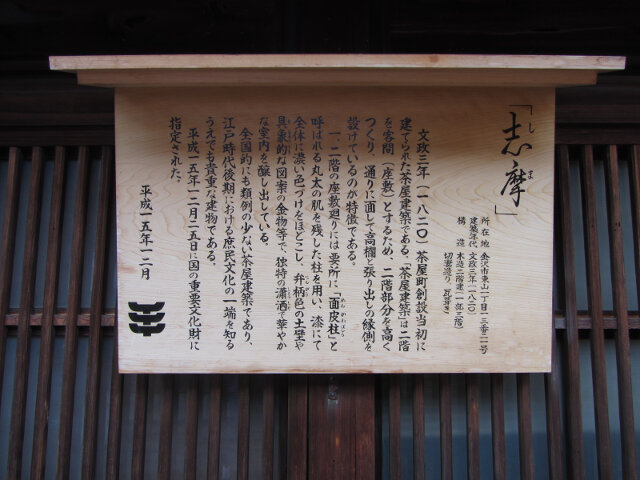 「志摩」
しま
所在地 金沢市東山一丁目一三番二一号
建築年代 文政三年(一八二〇)
構造 木造二階建(一部三階)
切妻造り 瓦葺き
文政三年(一八二〇)茶屋町創設当初に
建てられた茶屋建築である。「茶屋建築」は二階
を客間(座敷)とするため、二階部分を高く
つくり、通りに面して高欄と張り出しの縁側を
設けているのが特徴である。
一、二階の座敷廻りには要所に「面皮柱」と
めんかわばしら
呼ばれる丸太の肌を残した柱を用い、漆にて
全体に濃い色づけをほどこし、弁柄色の土壁や
具象的な図案の金物等で、独特の瀟洒で華やか
な室内を醸し出している。
全国的にも類例の少ない茶屋建築であり、
江戸時代後期における庶民文化の一端を知る
うえでも貴重な建物である。
平成一五年一二月二五日に国の重要文化財に
指定された。
平成一五年一二月